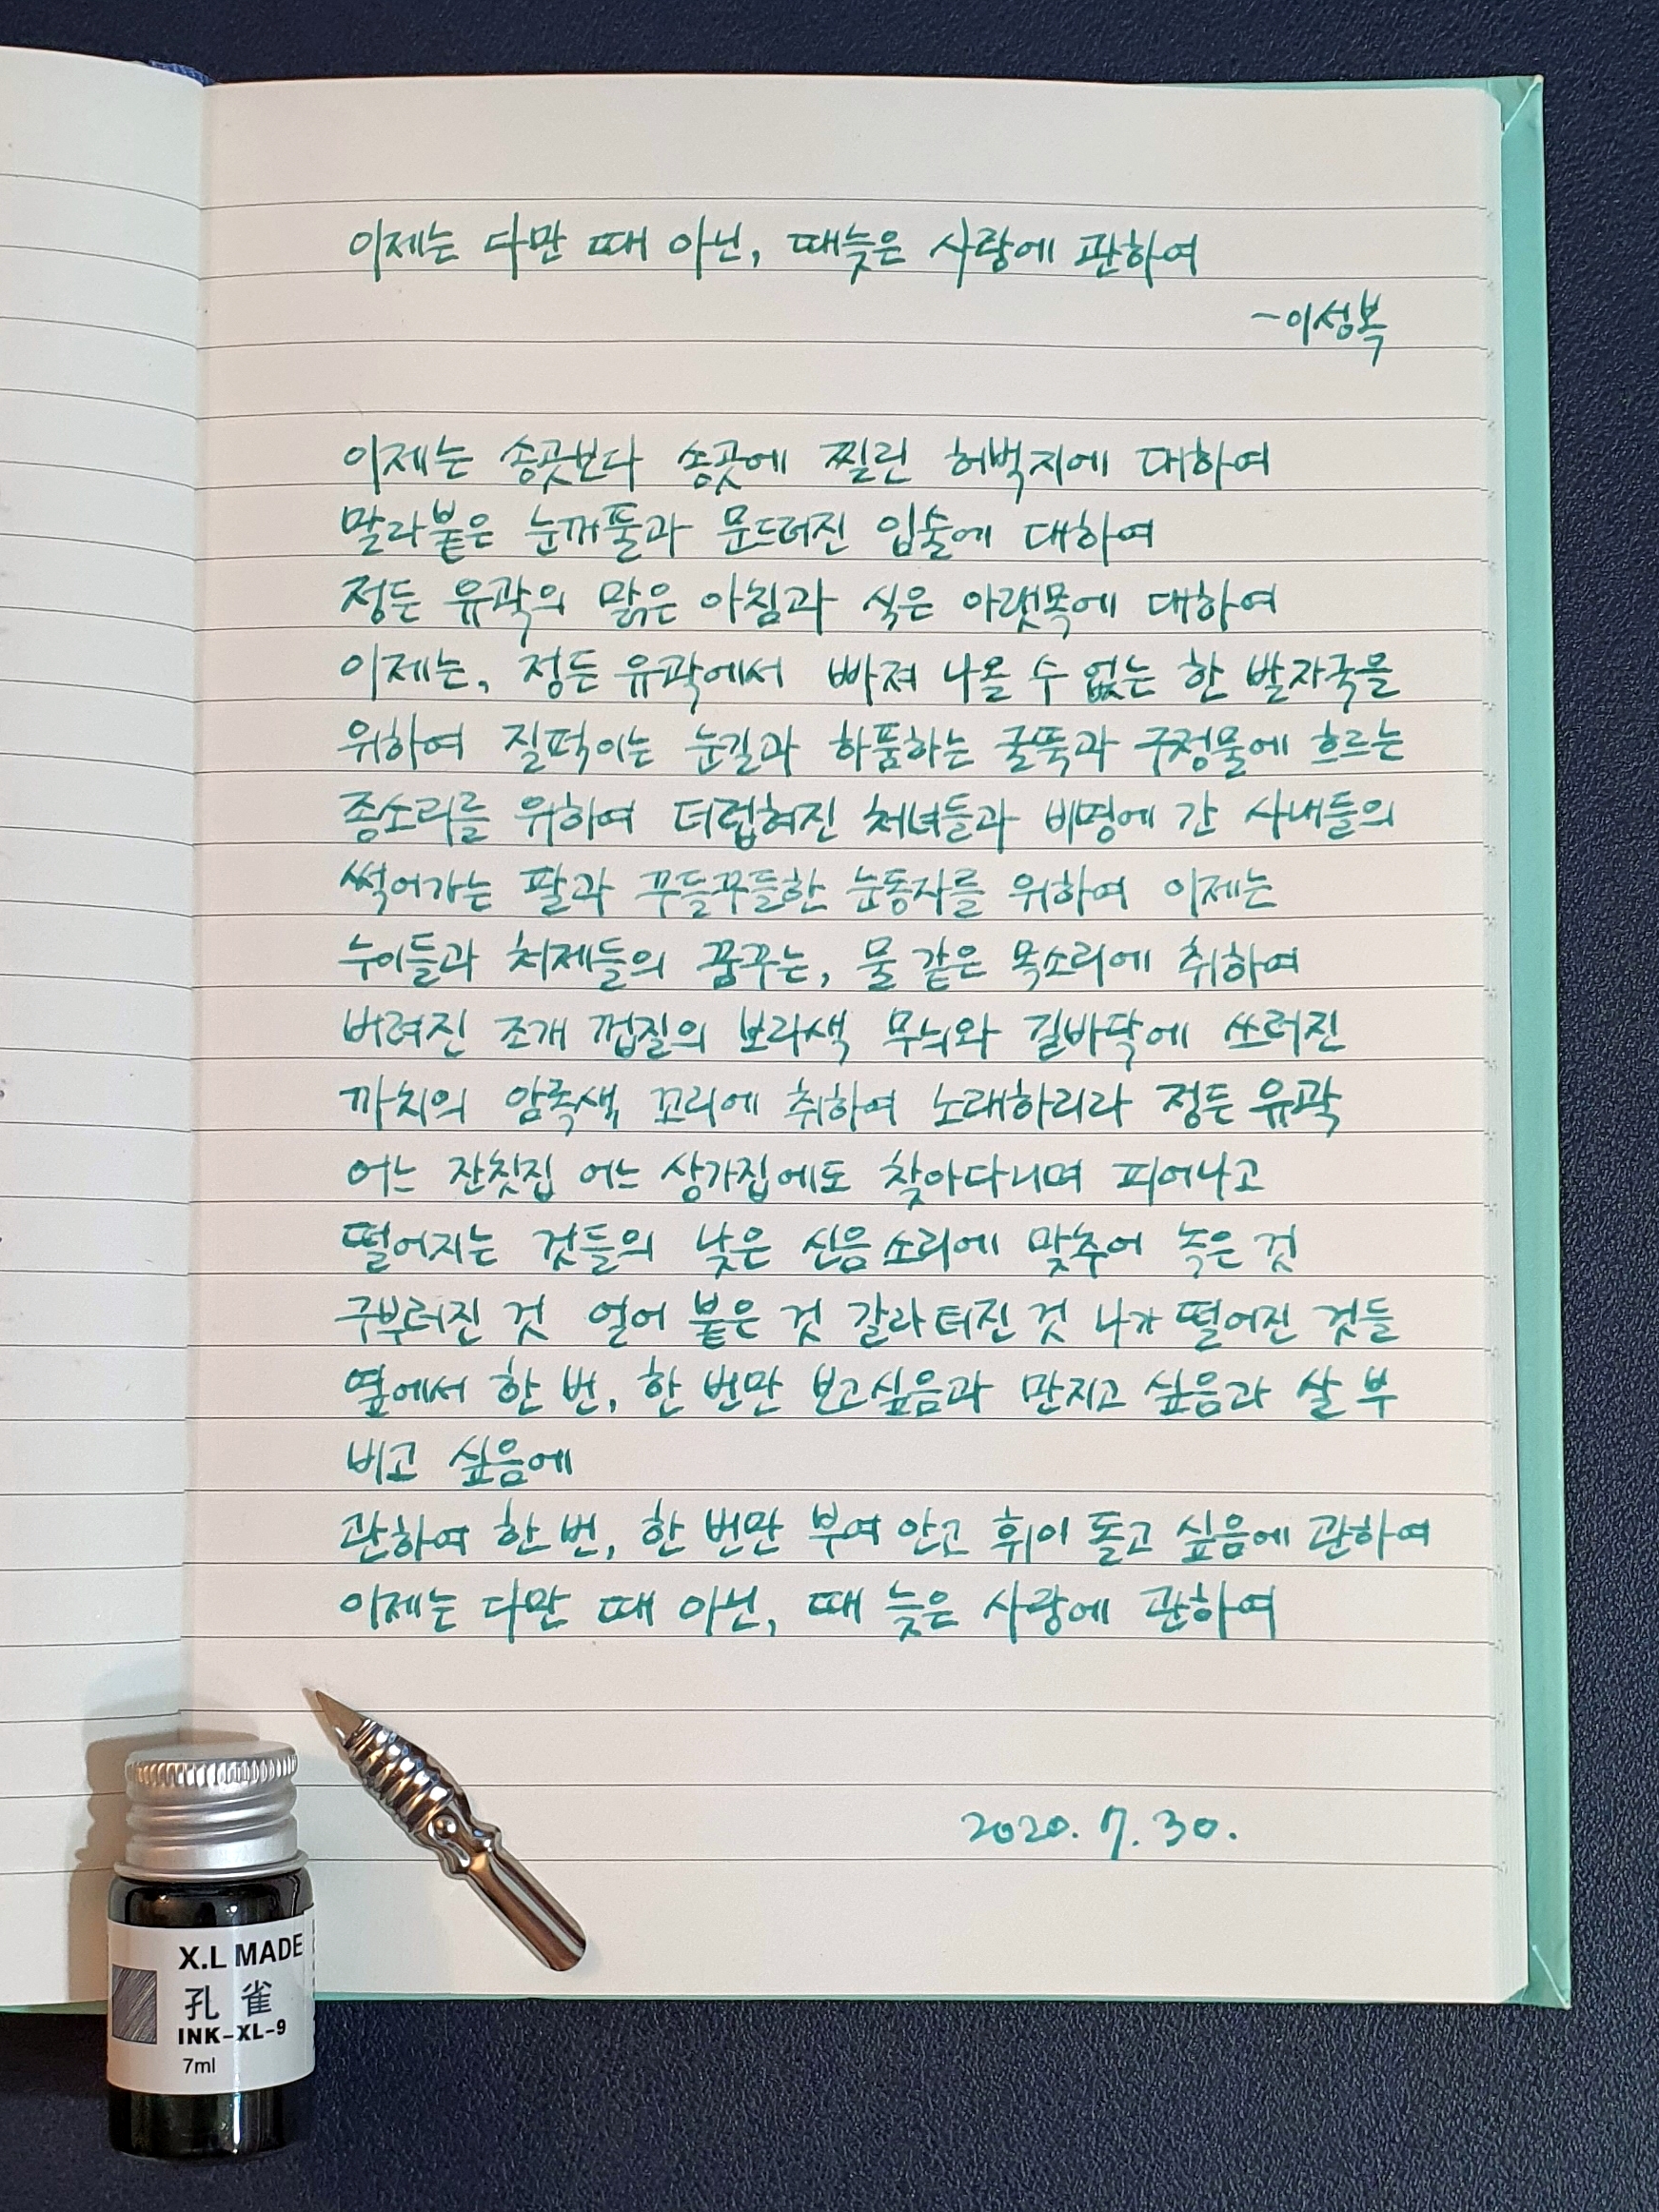 이제는 다만 때 아닌, 때늦은 사랑에 관하여
-이성복
이제는 송곳보다 송곳에 찔린 허벅지에 대하여
말라붙은 눈꺼풀과 문드러진 입술에 대하여
정든 유곽의 맑은 아침과 식은 아랫목에 대하여
이제는, 정든 유곽에서 빠져 나올 수 없는 한 발자국을
위하여 질퍽이는 눈길과 하품하는 굴뚝과 구정물에 흐르는
종소리를 위하여 더럽혀진 처녀들과 비명에 간 사내들의
썩어가는 팔과 꾸들꾸들한 눈동자를 위하여 이제는
누이들과 처제들의 꿈꾸는, 물 같은 목소리에 취하여
버려진 조개 껍질의 보라색 무늬와 길바닥에 쓰러진
까치의 암록색 꼬리에 취하여 노래하리라 정든 유곽
어느 잔칫집 어느 상가집에도 찾아다니며 피어나고
떨어지는 것들의 낮은 신음소리에 맞추어 녹은 것
구부러진 것 얼어 붙은 것 갈라 터진 것 나가 떨어진 것들
옆에서 한 번, 한 번만 보고싶음과 만지고 싶음과 살 부
비고 싶음에
관하여 한 번, 한 번만 부여 안고 휘이 돌고 싶음에 관하여
이제는 다만 때 아닌, 때 늦은 사랑에 관하여
2020. 7. 30.
X.L MADE
孔雀
INK-XL-9
7ml